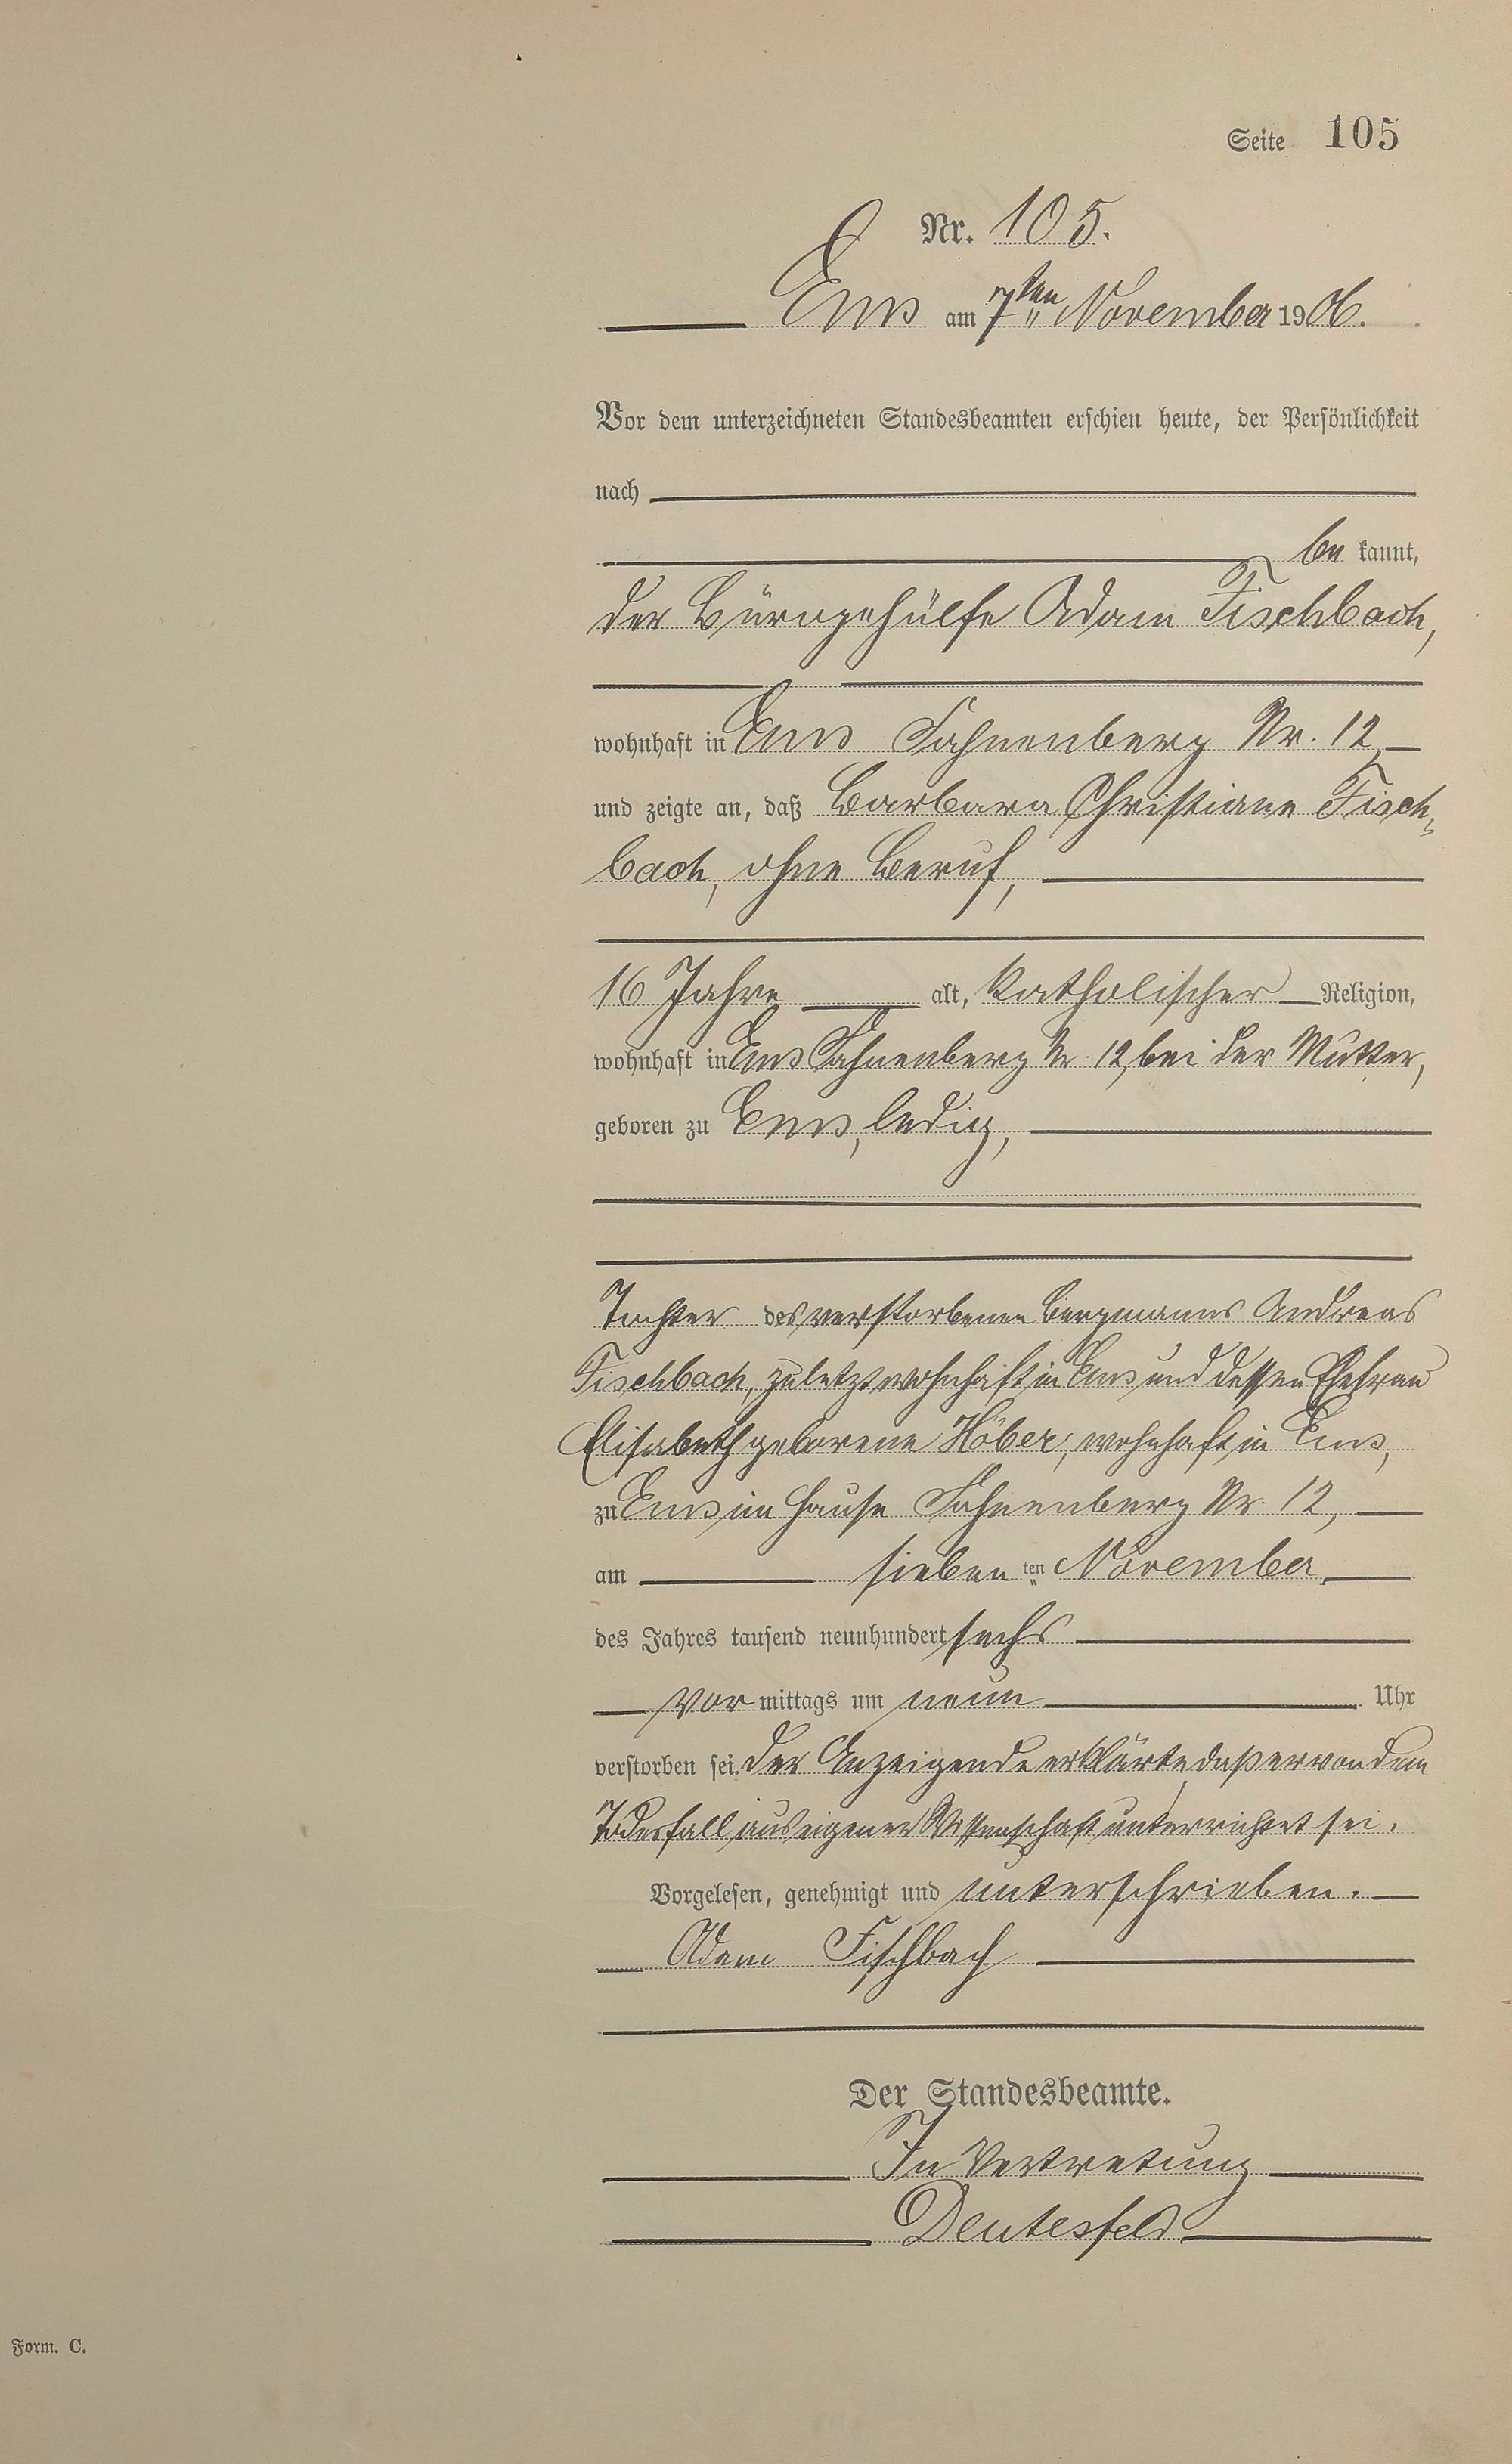 Seite 105
Nr. 105.
Ems am 7ten November 1906.
Vor dem unterzeichneten Standesbeamten erschien heute, der Persönlichkeit
nach
be kannt,
der Bürogehülfe Adam Fischbach,
wohnhaft in Ems Fahnenberg Nr. 12,
und zeigte an, daß Barbara Christiane Fisch-
bach, ohne Beruf,
16 Jahre alt, katholischer Religion,
wohnhaft in Ems Fahnenberg Nr. 12, bei der Mutter,
geboren zu Ems, ledig,
Tochter des verstorbenen Bergmanns Andreas
Fischbach, zuletzt wohnhaft in Ems und dessen Ehefrau
Elisabeth geborene Höber, wohnhaft in Ems,
zu Ems im Hause Fahnenberg Nr. 12,
am sieben ten November
des Jahres tausend neunhundert sechs
Vor mittags um neun Uhr
verstorben sei. Der Anzeigende erklärte, daß er von dem
Todesfall aus eigener Wissenschaft unterrichtet sei.
Vorgelesen, genehmigt und unterschrieben.
Adam Fischbach
Der Standesbeamte.
In Vertretung
Deutesfeld
Form. C.